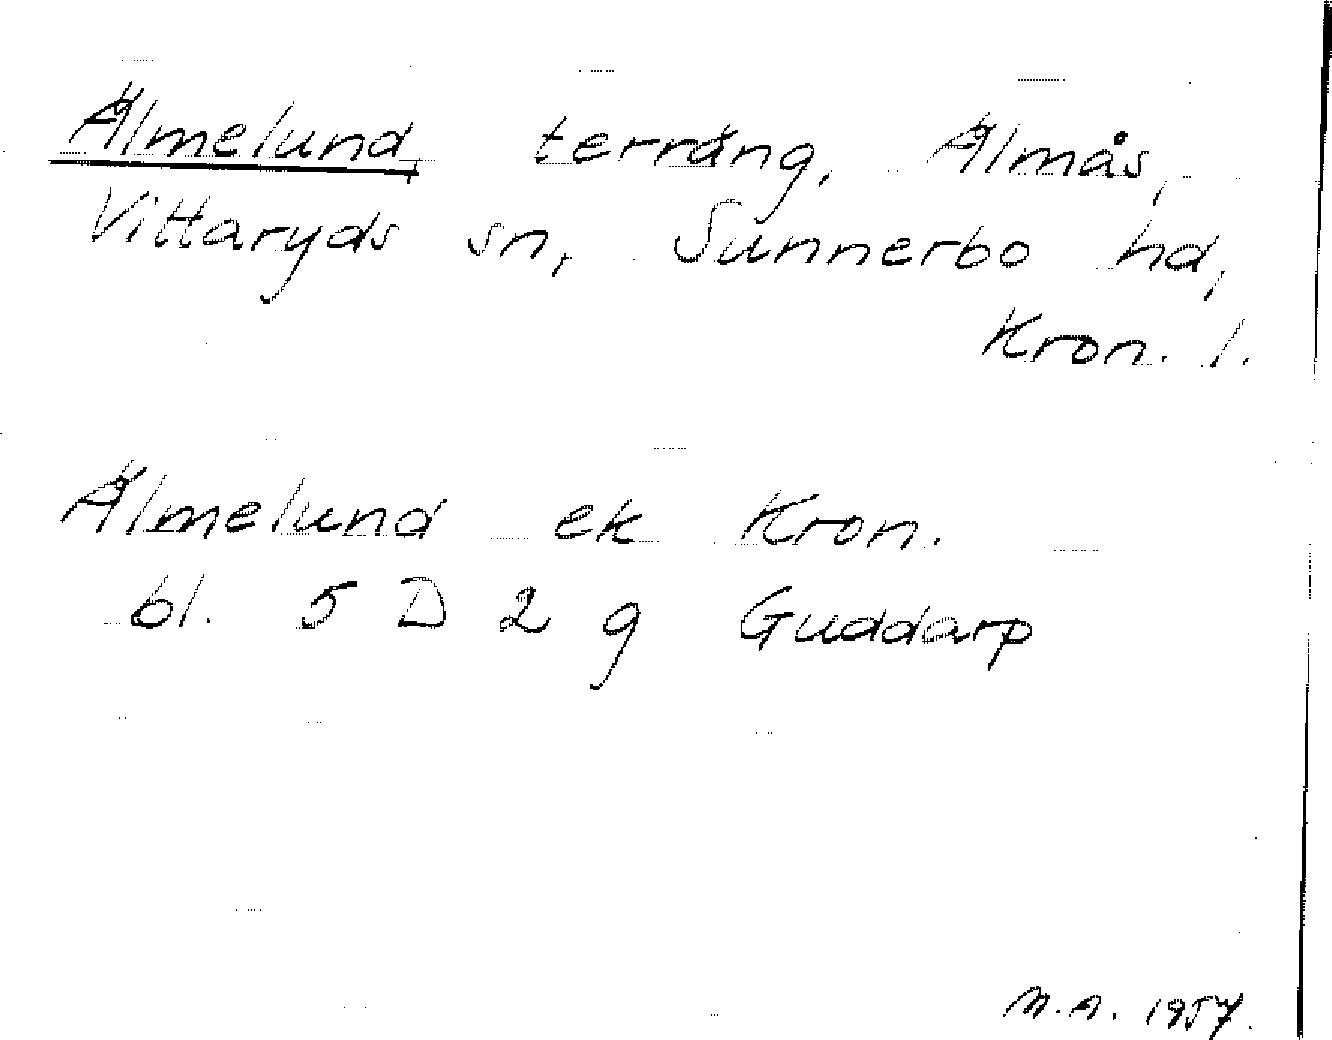 Älmelund terräng, Älmås,
Vittaryds sn, Sunnerbo hd,
Kron. l.
Älmelund ek Kron.
bl. 5 D 2 g Guddarp
M.A. 1957.